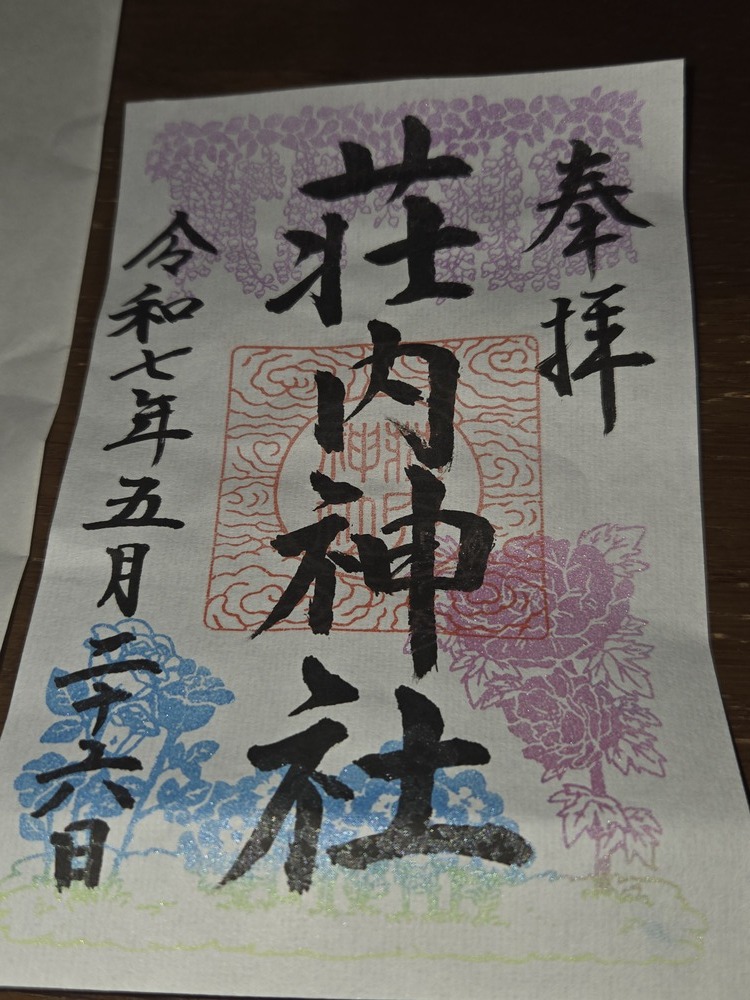 奉拝
荘内神社
令和七年五月二十六日